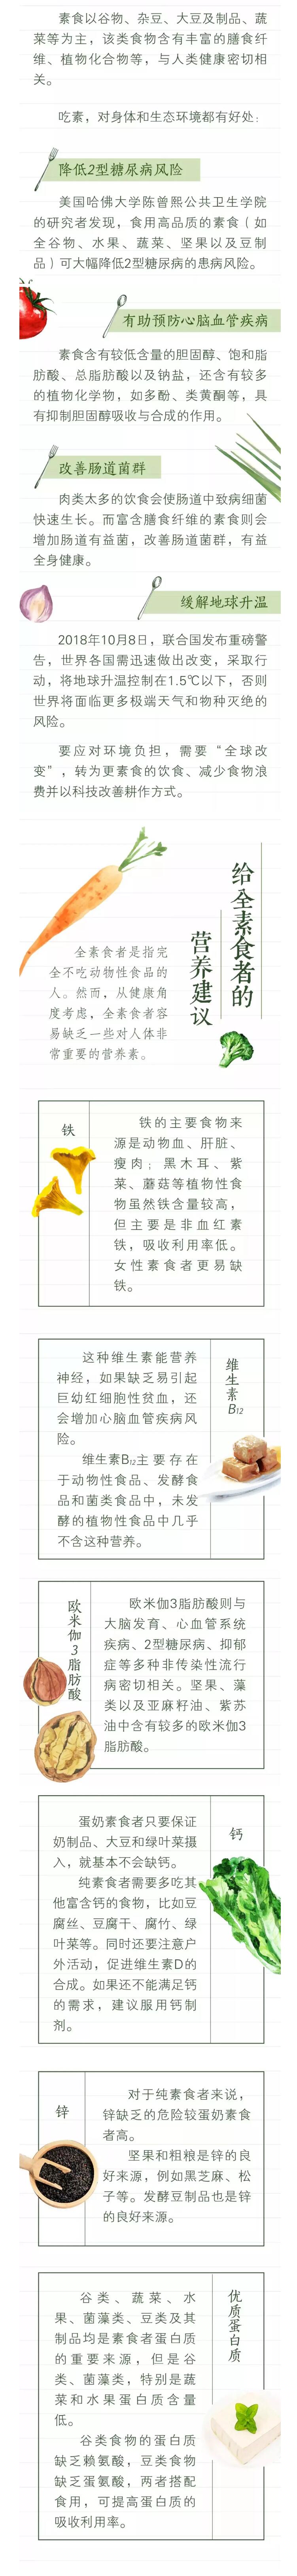 素食以谷物、杂豆、大豆及制品、蔬
菜等为主，该类食物含有丰富的膳食纤
维、植物化合物等，与人类健康密切相
关。
吃素，对身体和生态环境都有好处：
降低2型糖尿病风险
美国哈佛大学陈曾熙公共卫生学院
的研究者发现，食用高品质的素食（如
全谷物、水果、蔬菜、坚果以及豆制
品）可大幅降低2型糖尿病的患病风险。
有助预防心脑血管疾病
素食含有较低含量的胆固醇、饱和脂
肪酸、总脂肪酸以及钠盐，还含有较多
的植物化学物，如多酚、类黄酮等，具
有抑制胆固醇吸收与合成的作用。
改善肠道菌群
肉类太多的饮食会使肠道中致病细菌
快速生长。而富含膳食纤维的素食则会
增加肠道有益菌，改善肠道菌群，有益
全身健康。
缓解地球升温
2018年10月8日，联合国发布重磅警
告，世界各国需迅速做出改变，采取行
动，将地球升温控制在1.5℃以下，否则
世界将面临更多极端天气和物种灭绝的
风险。
要应对环境负担，需要“全球改
变”，转为更素食的饮食、减少食物浪
费并以科技改善耕作方式。
给全素食者的
营养建议
全素食者是指完
全不吃动物性食品的
人。然而，从健康角
度考虑，全素食者容
易缺乏一些对人体非
常重要的营养素。
铁
铁的主要食物来
源是动物血、肝脏、
瘦肉；黑木耳、紫
菜、蘑菇等植物性食
物虽然铁含量较高，
但主要是非血红素
铁，吸收利用率低。
女性素食者更易缺
铁。
维生素B₁₂
这种维生素能营养
神经，如果缺乏易引起
巨幼红细胞性贫血，还
会增加心脑血管疾病风
险。
维生素B₁₂主要存在
于动物性食品、发酵食
品和菌类食品中，未发
酵的植物性食品中几乎
不含这种营养。
欧米伽3脂肪酸
欧米伽3脂肪酸则与
大脑发育、心血管系统
疾病、2型糖尿病、抑郁
症等多种非传染性流行
病密切相关。坚果、藻
类以及亚麻籽油、紫苏
油中含有较多的欧米伽3
脂肪酸。
钙
蛋奶素食者只要保证
奶制品、大豆和绿叶菜摄
入，就基本不会缺钙。
纯素食者需要多吃其
他富含钙的食物，比如豆
腐丝、豆腐干、腐竹、绿
叶菜等。同时还要注意户
外活动，促进维生素D的
合成。如果还不能满足钙
的需求，建议服用钙制
剂。
锌
对于纯素食者来说，
锌缺乏的危险较蛋奶素食
者高。
坚果和粗粮是锌的良
好来源，例如黑芝麻、松
子等。发酵豆制品也是锌
的良好来源。
优质蛋白质
谷类、蔬菜、水
果、菌藻类、豆类及其
制品均是素食者蛋白质
的重要来源，但是谷
类、菌藻类，特别是蔬
菜和水果蛋白质含量
低。
谷类食物的蛋白质
缺乏赖氨酸，豆类食物
缺乏蛋氨酸，两者搭配
食用，可提高蛋白质的
吸收利用率。